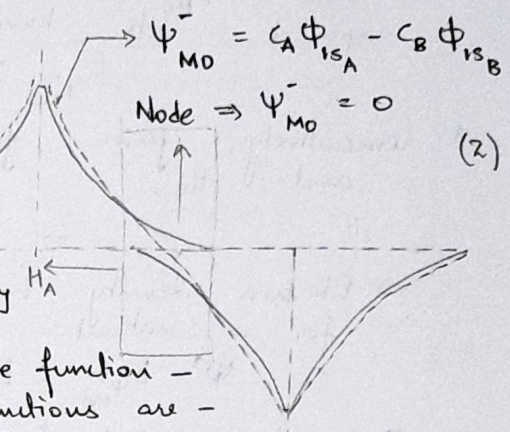 Ψ⁻MO = CA Φ1SA - CB Φ1SB
Node ⇒ Ψ⁻MO = 0
(2)
HA
y
e function –
nctions are –